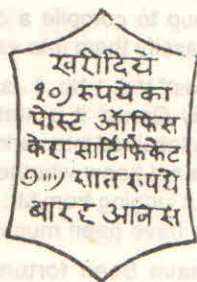 खरीदिये
१०) रुपये का
पोस्ट ऑफिस
केश सार्टिफिकेट
७॥।) सात रुपये
बारह आनस